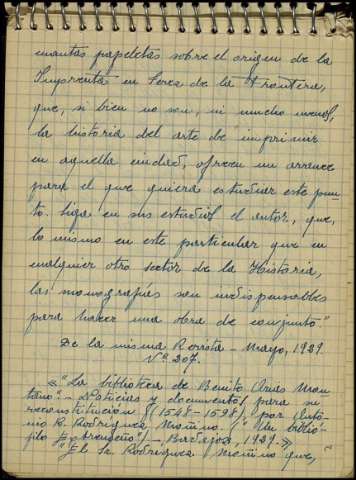 cuantas papeletas sobre el origen de la
Imprenta en Jerez de la Frontera,
que, si bien no son, ni mucho menos,
la historia del arte de imprimir
en aquella ciudad, ofrecen un arranque
para el que quiera estudiar este pun-
to. Siga en sus estudios el autor, que,
lo mismo en este particular que en
cualquier otro sector de la Historia,
las monografías son indispensables
para hacer una obra de conjunto."
De la misma Revista - Mayo, 1929.
Nº 207.
«"La biblioteca de Benito Arias Mon-
tano. - Noticias y documentos para su
reconstitución (1548-1598), por Anto-
nio R. Rodríguez Moñino. ("Un biblió-
filo Extremeño") - Badajoz, 1929.»
"El Sr. Rodríguez Moñino que,